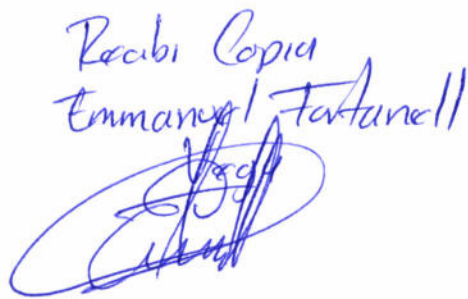 Recibi Copia
Emmanuel Fontanell
Vega